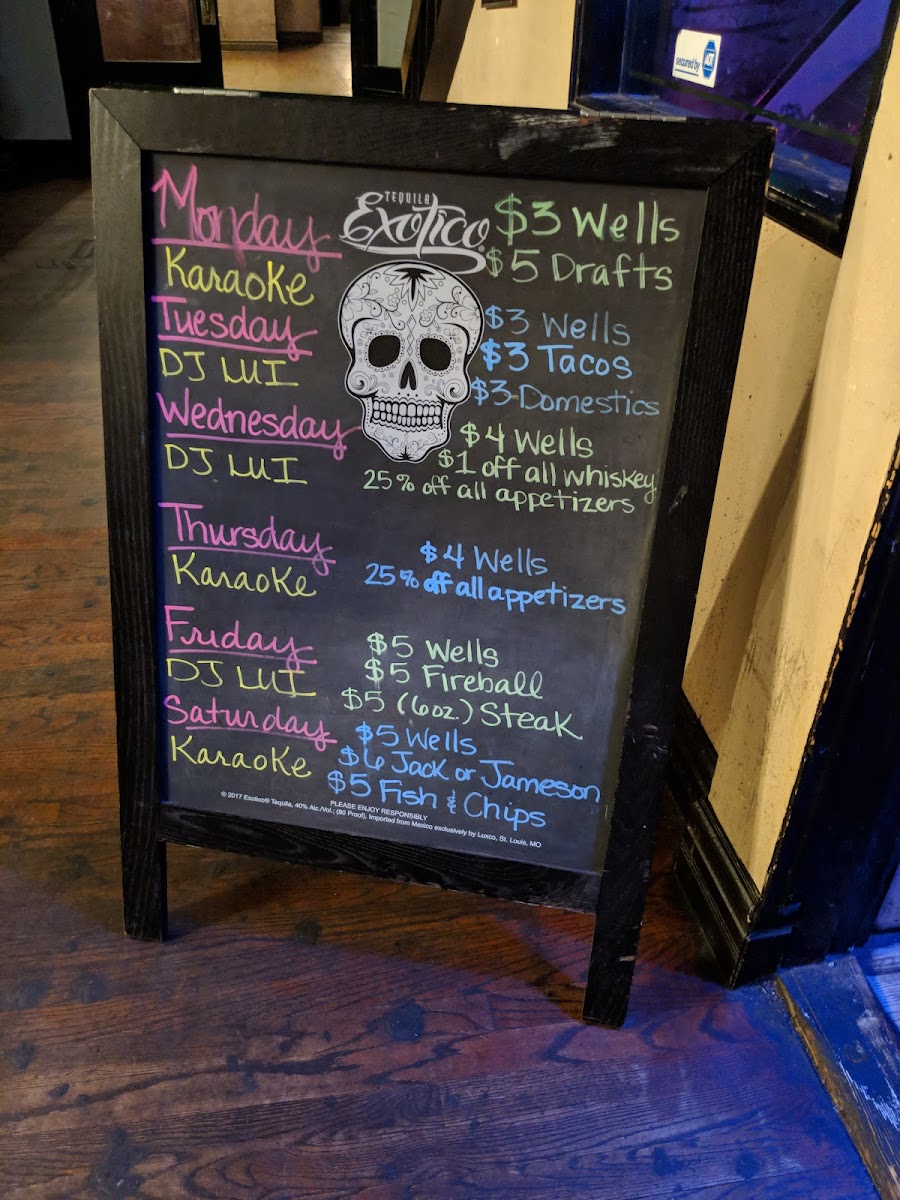 secured by ADT
TEQUILA
Exotico®
Monday
$3 Wells
$5 Drafts
Karaoke
Tuesday
$3 Wells
$3 Tacos
DJ LUI
$3 Domestics
Wednesday
$4 Wells
DJ LUI
$1 off all whiskey
25% off all appetizers
Thursday
$4 Wells
Karaoke
25% off all appetizers
Friday
$5 Wells
DJ LUI
$5 Fireball
$5 (6oz.) Steak
Saturday
$5 Wells
Karaoke
$6 Jack or Jameson
$5 Fish & Chips
PLEASE ENJOY RESPONSIBLY
© 2017 Exotico® Tequila, 40% Alc./Vol.; (80 Proof), Imported from Mexico exclusively by Luxco, St. Louis, MO